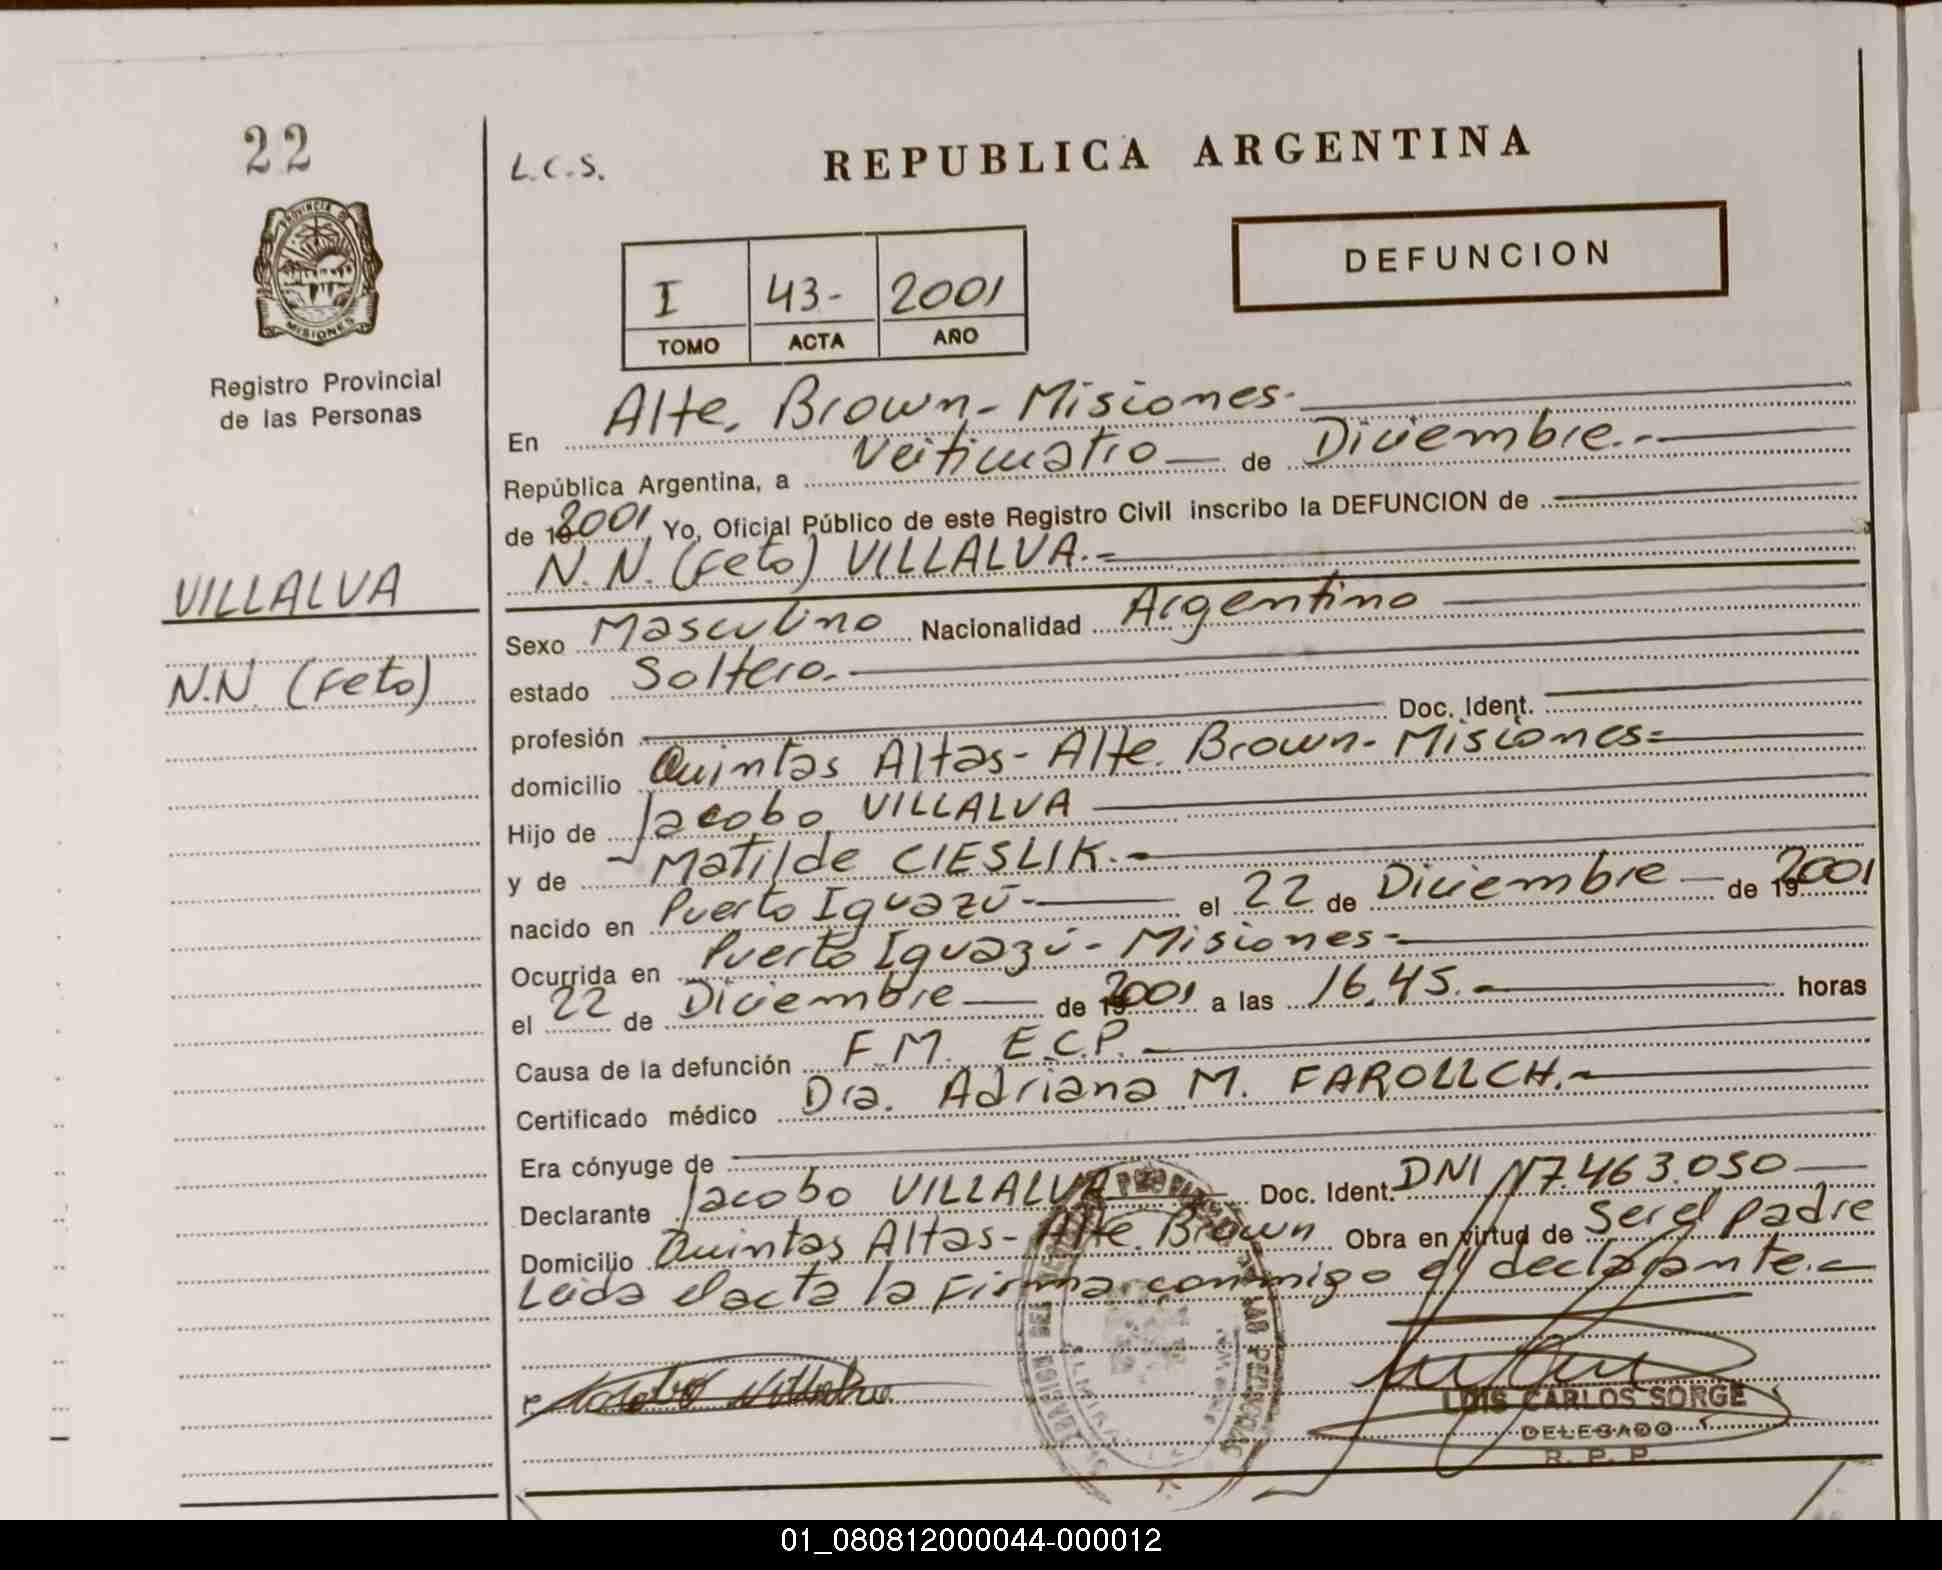 22
L.C.S.
REPUBLICA ARGENTINA
PROVINCIA DE
MISIONES
DEFUNCION
I 43- 2001
TOMO ACTA AÑO
Registro Provincial
de las Personas
En Alte. Brown - Misiones.
República Argentina, a Veiticuatro de Diciembre.-
de 19 2001 Yo, Oficial Público de este Registro Civil inscribo la DEFUNCION de
N.N. (Feto) VILLALVA.-
VILLALVA
N.N. (Feto)
Sexo Masculino Nacionalidad Argentino
estado Soltero.
profesión Doc. Ident.
domicilio Quintas Altas - Alte. Brown - Misiones-
Hijo de Jacobo VILLALVA
y de Matilde CIESLIK.-
nacido en Puerto Iguazú- el 22 de Diciembre de 19 2001
Ocurrida en Puerto Iguazú - Misiones-
el 22 de Diciembre de 19 2001 a las 16,45.- horas
Causa de la defunción F.M. E.C.P.-
Certificado médico Dra. Adriana M. FAROLLCH.-
Era cónyuge de
Declarante Jacobo VILLALVA Doc. Ident. DNI 17.463.050
Domicilio Quintas Altas - Alte. Brown Obra en virtud de Ser el padre
Leida el acta la Firma conmigo el declarante.-
LUIS CARLOS SORGE
DELEGADO
R. P. P.
01_080812000044-000012